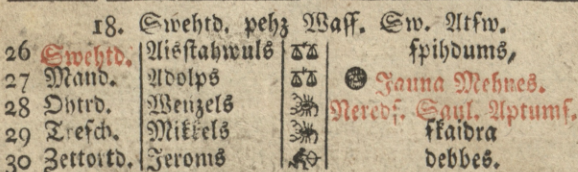 18. Swehtd. pehz Waſſ. Sw. Atſw.
26 Swehtd. Aisſtahwuls ſpihdums,
27 Mand. Adolps Jauna Mehnes.
28 Ohtrd. Wenzels Neredſ. Saul. Aptumſ.
29 Treſch. Mikkels ſkaidra
30 Zettortd. Jeroms debbes.